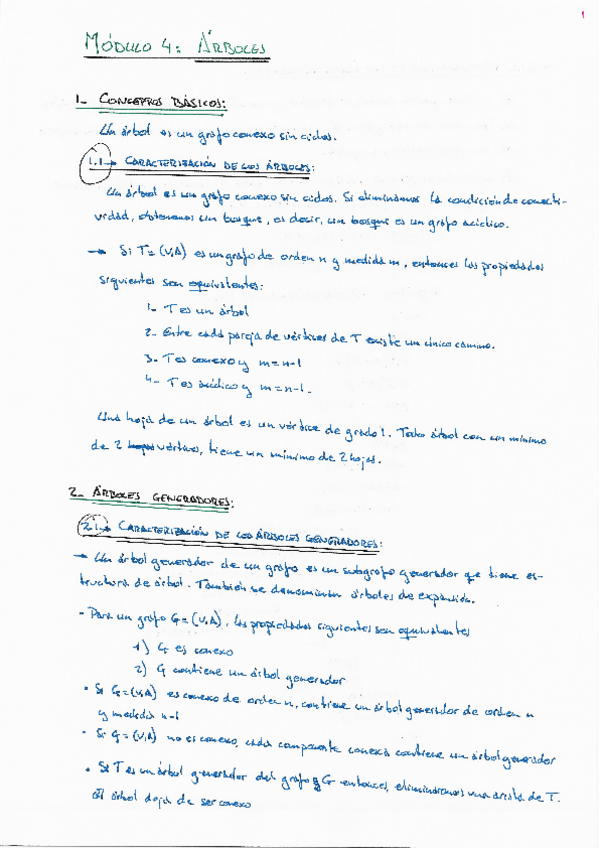 1
MÓDULO 4: ÁRBOLES
1- CONCEPTOS BÁSICOS:
Un árbol es un grafo conexo sin ciclos.
1.1→ CARACTERIZACIÓN DE LOS ÁRBOLES:
Un árbol es un grafo conexo sin ciclos. Si eliminamos la condición de conecti-
vidad, obtenemos un bosque, es decir, un bosque es un grafo acíclico.
→ Si T=(V,A) es un grafo de orden n y medida m, entonces las propiedades
siguientes son equivalentes:
1- T es un árbol
2- Entre cada pareja de vértices de T existe un único camino.
3- T es conexo y m=n-1
4- T es acíclico y m=n-1-
Una hoja de un árbol es un vértice de grado 1. Todo árbol con un mínimo
de 2 hojas vértices, tiene un mínimo de 2 hojas.
2- ÁRBOLES GENERADORES:
2.1→ CARACTERIZACIÓN DE LOS ÁRBOLES GENERADORES:
→ Un árbol generador de un grafo es un subgrafo generador que tiene es-
tructura de árbol. También se denominan árboles de expansión.
- Para un grafo G=(V,A), las propiedades siguientes son equivalentes
1) G es conexo
2) G contiene un árbol generador
• Si G=(V,A) es conexo de orden n, contiene un árbol generador de orden n
y medida n-1
• Si G=(V,A) no es conexo, cada componente conexa contiene un árbol generador
• Si T es un árbol generador del grafo G entonces, eliminaramos una arista de T.
El árbol deja de ser conexo